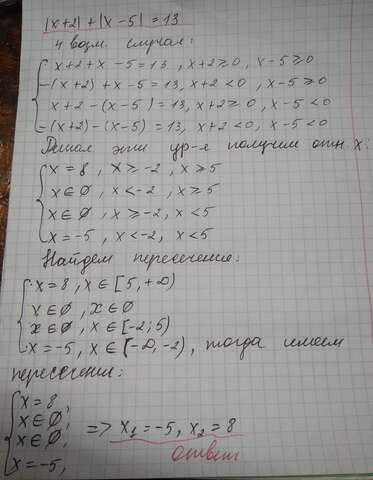 |x+2| + |x-5| = 13
4 возм. случая:
x+2+x-5=13, x+2≥0, x-5≥0
-(x+2)+x-5=13, x+2<0, x-5≥0
x+2-(x-5)=13, x+2≥0, x-5<0
-(x+2)-(x-5)=13, x+2<0, x-5<0
Решая эти ур-я получим отн. x:
x=8, x≥-2, x≥5
x∈∅, x<-2, x≥5
x∈∅, x≥-2, x<5
x=-5, x<-2, x<5
Найдем пересечение:
x=8, x∈[5,+∞)
x∈∅, x∈∅
x∈∅, x∈[-2;5)
x=-5, x∈(-∞,-2), тогда имеем
пересечения:
x=8
x∈∅,
x∈∅, => x₁=-5, x₂=8
x=-5, ответ